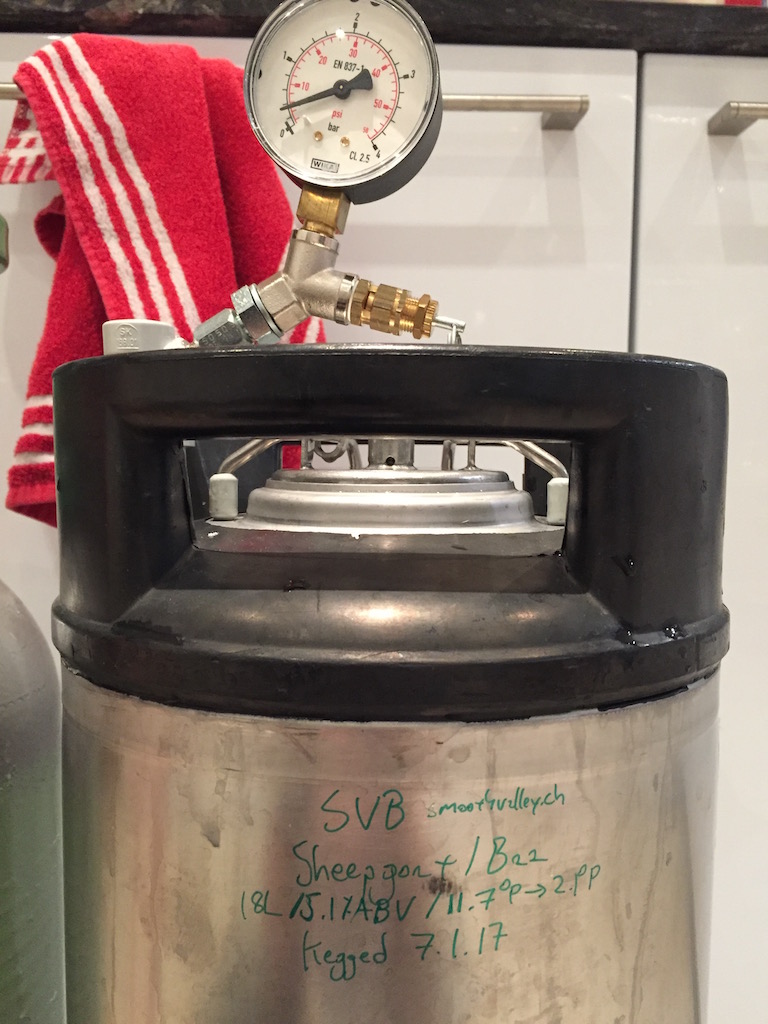 2
1 30 3
20 EN 837-1 40
10 50
psi
0 bar
CL 2.5 4
WIKA
SVB smoothvalley.ch
Sheepgoat / B22
18L / 5.1% ABV / 11.7°P → 2.1°P
Kegged 7.1.17